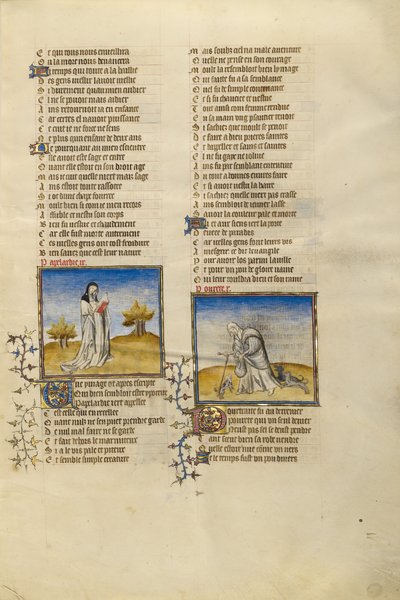 Et qui tous nous envieillira
Ou la mort nous devancera
Li temps qui toute a la baillie
Des gens vieillir lavoit vieillie
Si durement quau mien cuidier
El ne se povoit mais aidier
Ains retournoit ia en enfance
Car certes el navoit puissance
Ce cuit ie ne force ne sens
Ne plus quun enfant de deux ans
Et pourquant au mien escientre
Elle avoit este sage et entre
Quant elle estoit en son droit age
Mais ie cuit quelle niert mais sage
Ains estoit toute rassotee
Si ot dune chape fourree
Moult bien si com ie me recors
Affuble et vestu son corps
Bien fu vestue et chaudement
Car elle fust morte autrement
Ces vieilles gens ont tost froidure
Bien savez que cest leur nature
Papelardie.ix.
Une ymage ot apres escripte
Qui bien sembloit estre ypocrite
Papelardie iert appellee
Cest celle qui en recellee
Quant nulz ne sen puet prendre garde
De nul mal faire ne se garde
Et fait dehors le marmiteux
Si a le vis pale et piteux
Et semble simple creature
Mais soubz ciel na male aventure
Quelle ne pense en son courage
Moult la resembloit bien lymage
Qui faite fu a sa semblance
Quel fu de simple contenance
Et si fu chaucee et vestue
Tout ainsi com femme rendue
En sa main ung psautier tenoit
Si sachiez que moult se penoit
De faire a dieu prieres saintes
Et dappeller et sains et saintes
El ne fu gaye ne iolive
Ains fu par semblant ententive
Du tout a bonnes euvres faire
Et si avoit vestu la haire
Et sachiez quelle niert pas crasse
Ains sembloit de ieuner lasse
Savoit la couleur pale et morte
A lui et aux siens iert la porte
Devee de paradis
Car icelles gens font leurs vis
Amesgrir ce dit levangile
Pour avoir los parmi la ville
Et pour un pou de gloire vaine
Qui leur touldra dieu et son raine
Povrete.x.
Pourtraite fu au derrenier
Povrete qui un seul denier
Neust pas sel se deust pendre
Tant sceust bien sa robe vendre
Quelle estoit nue comme un vers
Se le temps fust un pou divers